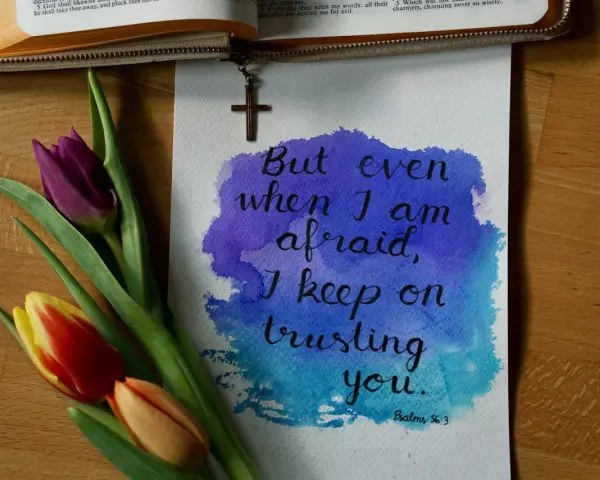 5 God shall likewise
be shall take thee away, and pluck thee out
5 Every day they wrest my words: all their
thoughts are against me for evil.
5 Which will not
charmers, charming never so wisely.
But even
when I am
afraid,
I keep on
trusting
you.
Psalms 56:3